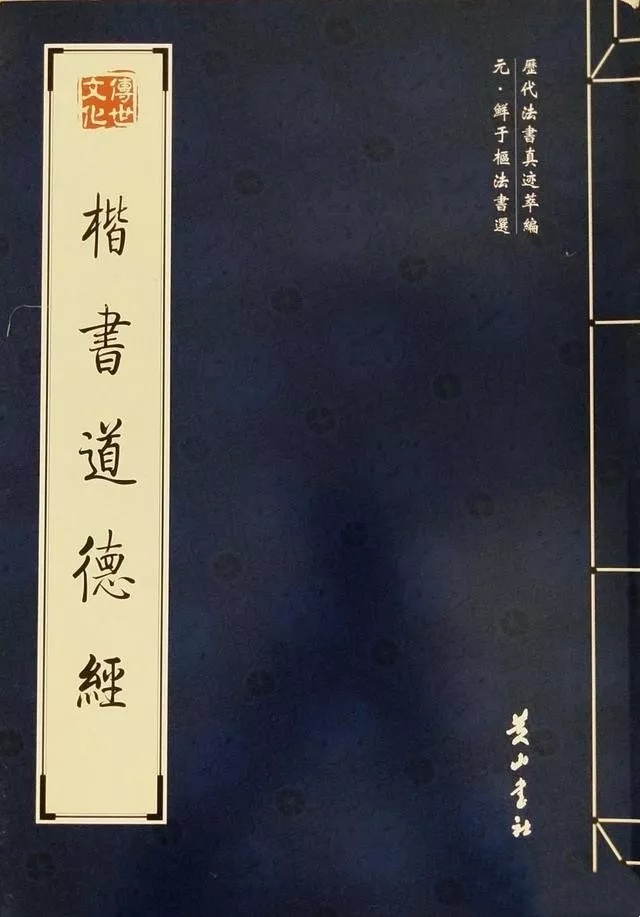 歷代法書真迹萃編
元·鮮于樞法書選
傳世
文化
楷書道德經
黄山書社